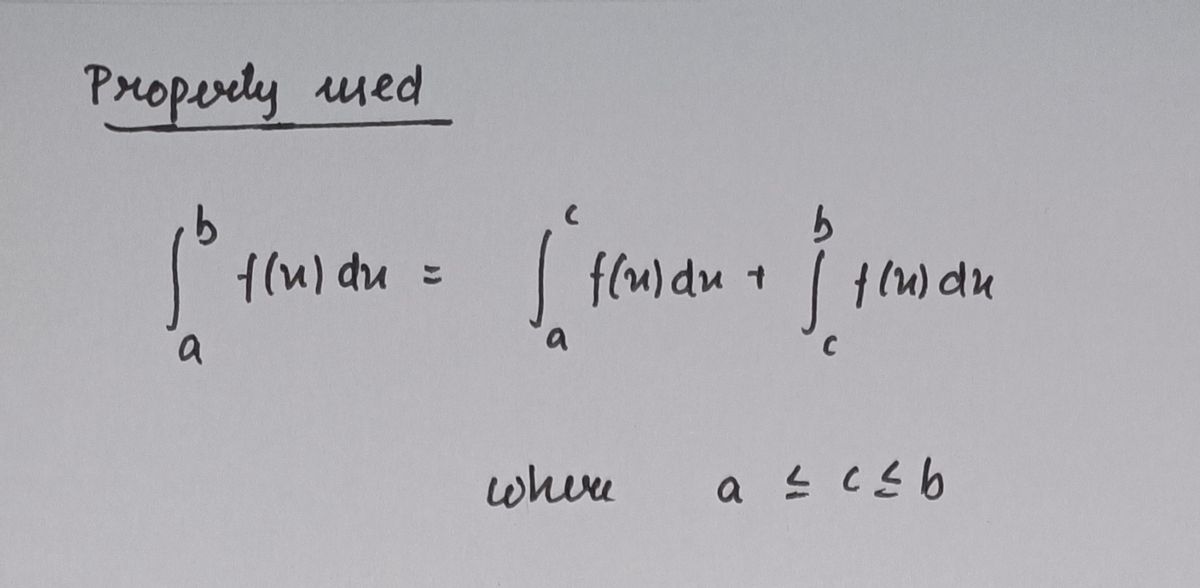 Property used
∫_a^b f(x) dx = ∫_a^c f(x) dx + ∫_c^b f(x) dx
where a ≤ c ≤ b